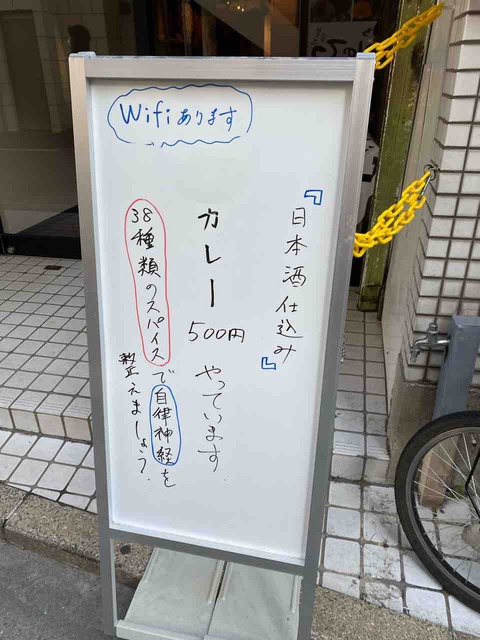 Wifiあります
『日本酒仕込み』
カレー 500円 やっています.
38種類のスパイスで自律神経を
整えましょう.